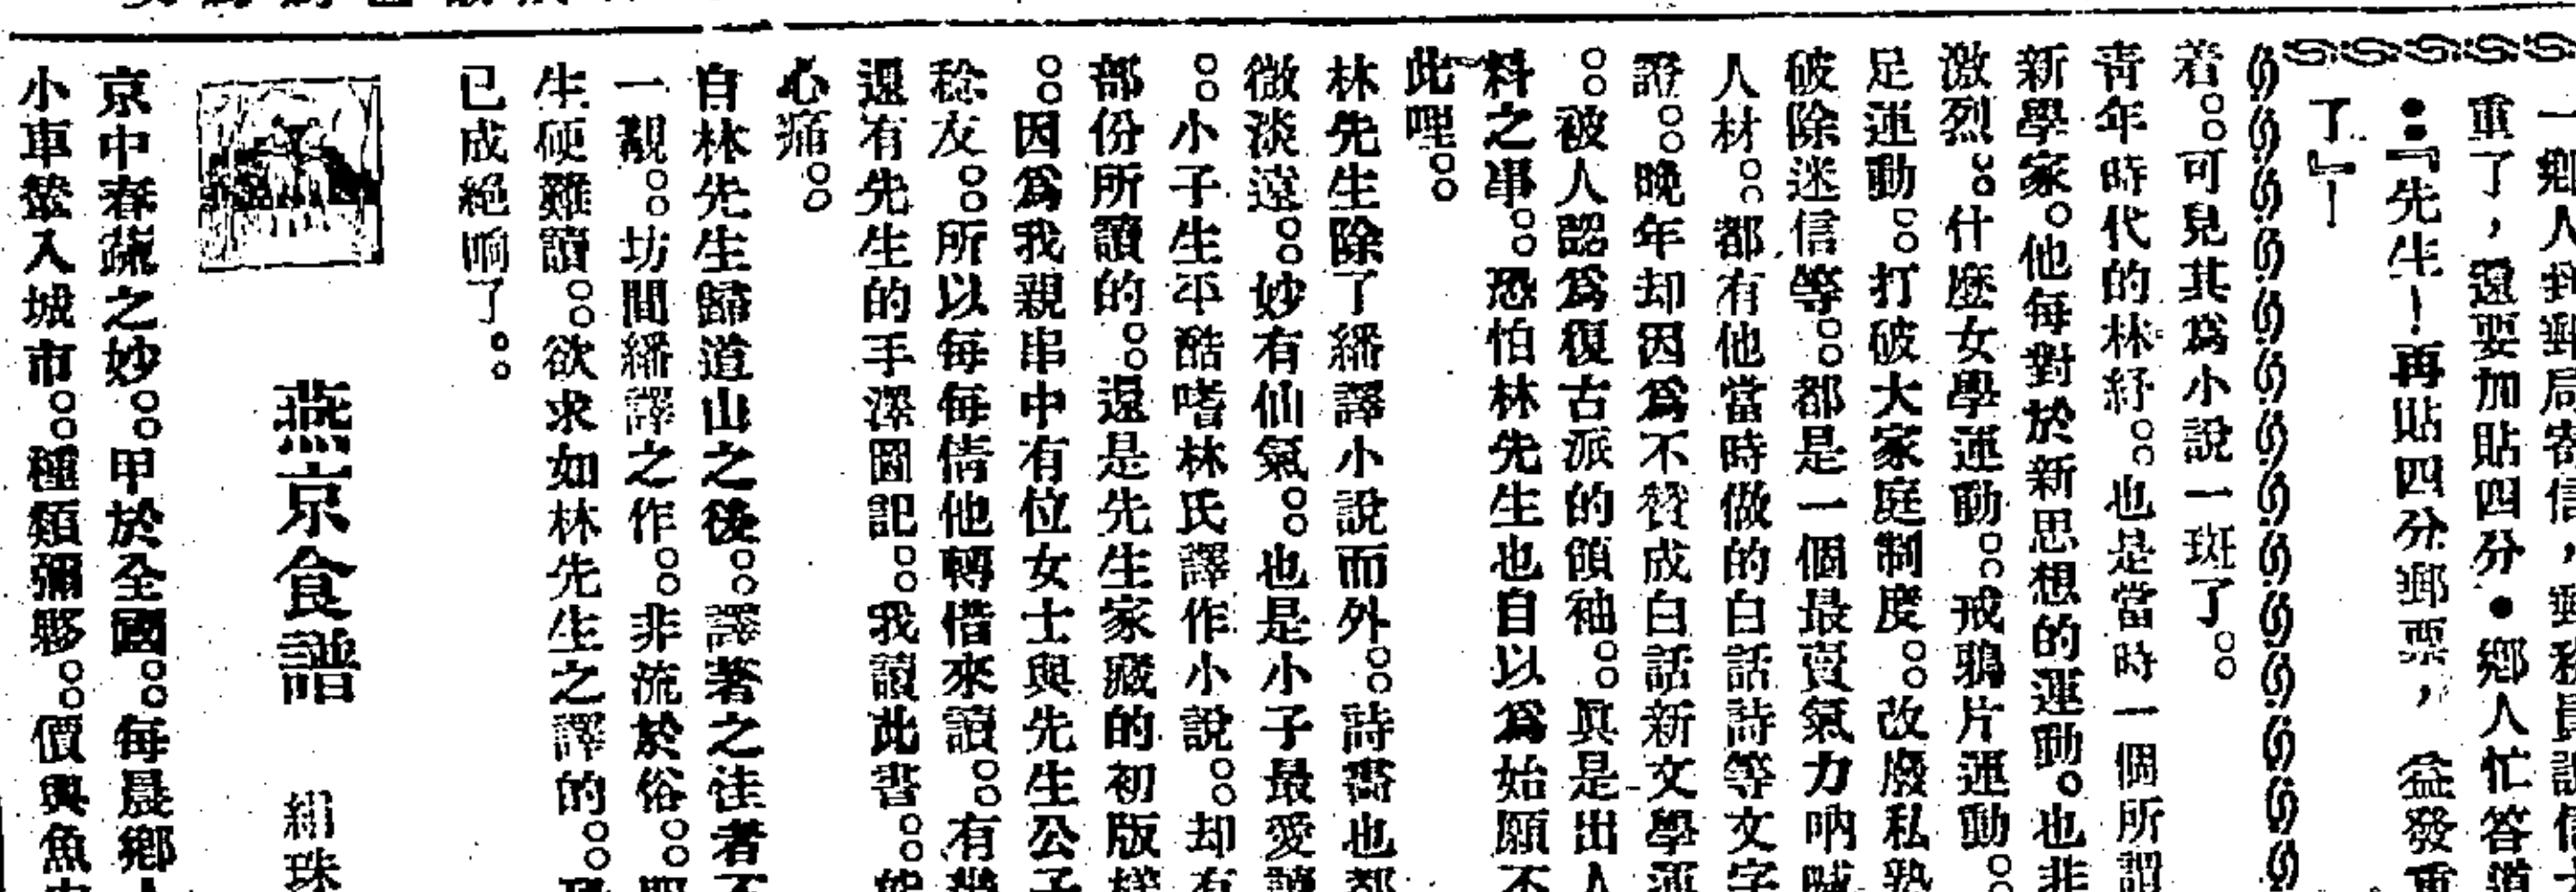 一鄉人到郵局寄信，郵務員說信
重了，還要加貼四分●鄉人忙答道
：『先生！再貼四分郵票，益發重
了』！
着。可見其爲小說一斑了。
靑年時代的林紓。也是當時一個所謂
新學家。他每對於新思想的運動。也非
激烈。什麽女學運動。戒鴉片運動。
足運動。打破大家庭制度。改廢私塾
破除迷信等。都是一個最賣氣力吶喊
人材。都有他當時做的白話詩等文字
證。晚年却因爲不贊成白話新文學運
。被人認爲復古派的領袖。眞是出人
料之事。恐怕林先生也自以爲始願不
此哩。
林先生除了繙譯小說而外。詩書也都
微淡遠。妙有仙氣。也是小子最愛讀
。小子生平酷嗜林氏譯作小說。却有
部份所讀的。還是先生家藏的初版樣
。因爲我親串中有位女士與先生公子
稔友。所以每每倩他轉借來讀。有幾
還有先生的手澤圖記。我讀此書。
心痛。
自林先生歸道山之後。譯著之佳者不
一覯。坊間繙譯之作。非流於俗。卽
生硬難讀。欲求如林先生之譯的。
已成絕响了。
燕京食譜
細珠
京中春蔬之妙。甲於全國。每晨鄉人
小車輦入城市。種類彌夥。價與魚